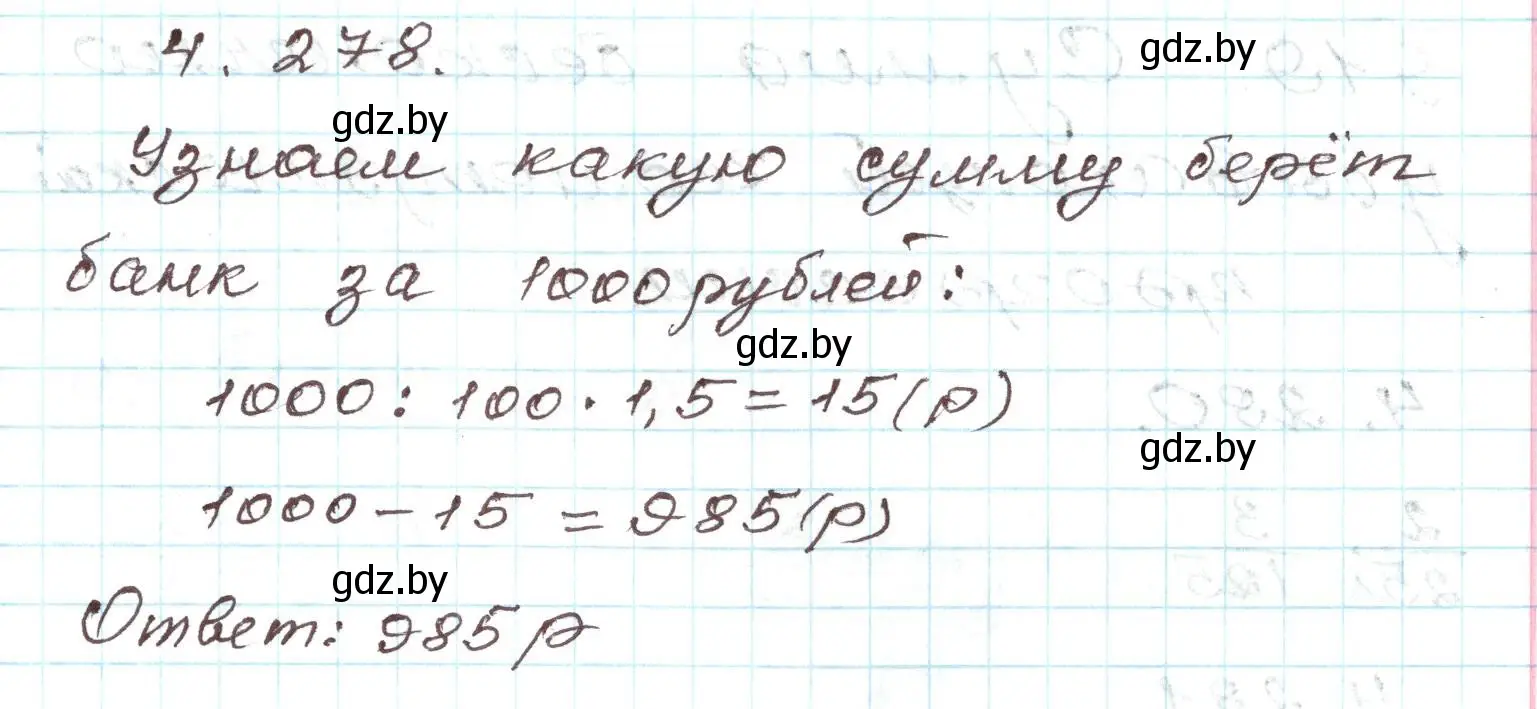 4. 278.
gdz.by
gdz.by
Узнаем какую сумму берёт
банк за 1000 рублей:
gdz.by
1000 : 100 · 1,5 = 15 (р)
gdz.by
1000 - 15 = 985 (р)
gdz.by
Ответ: 985 р